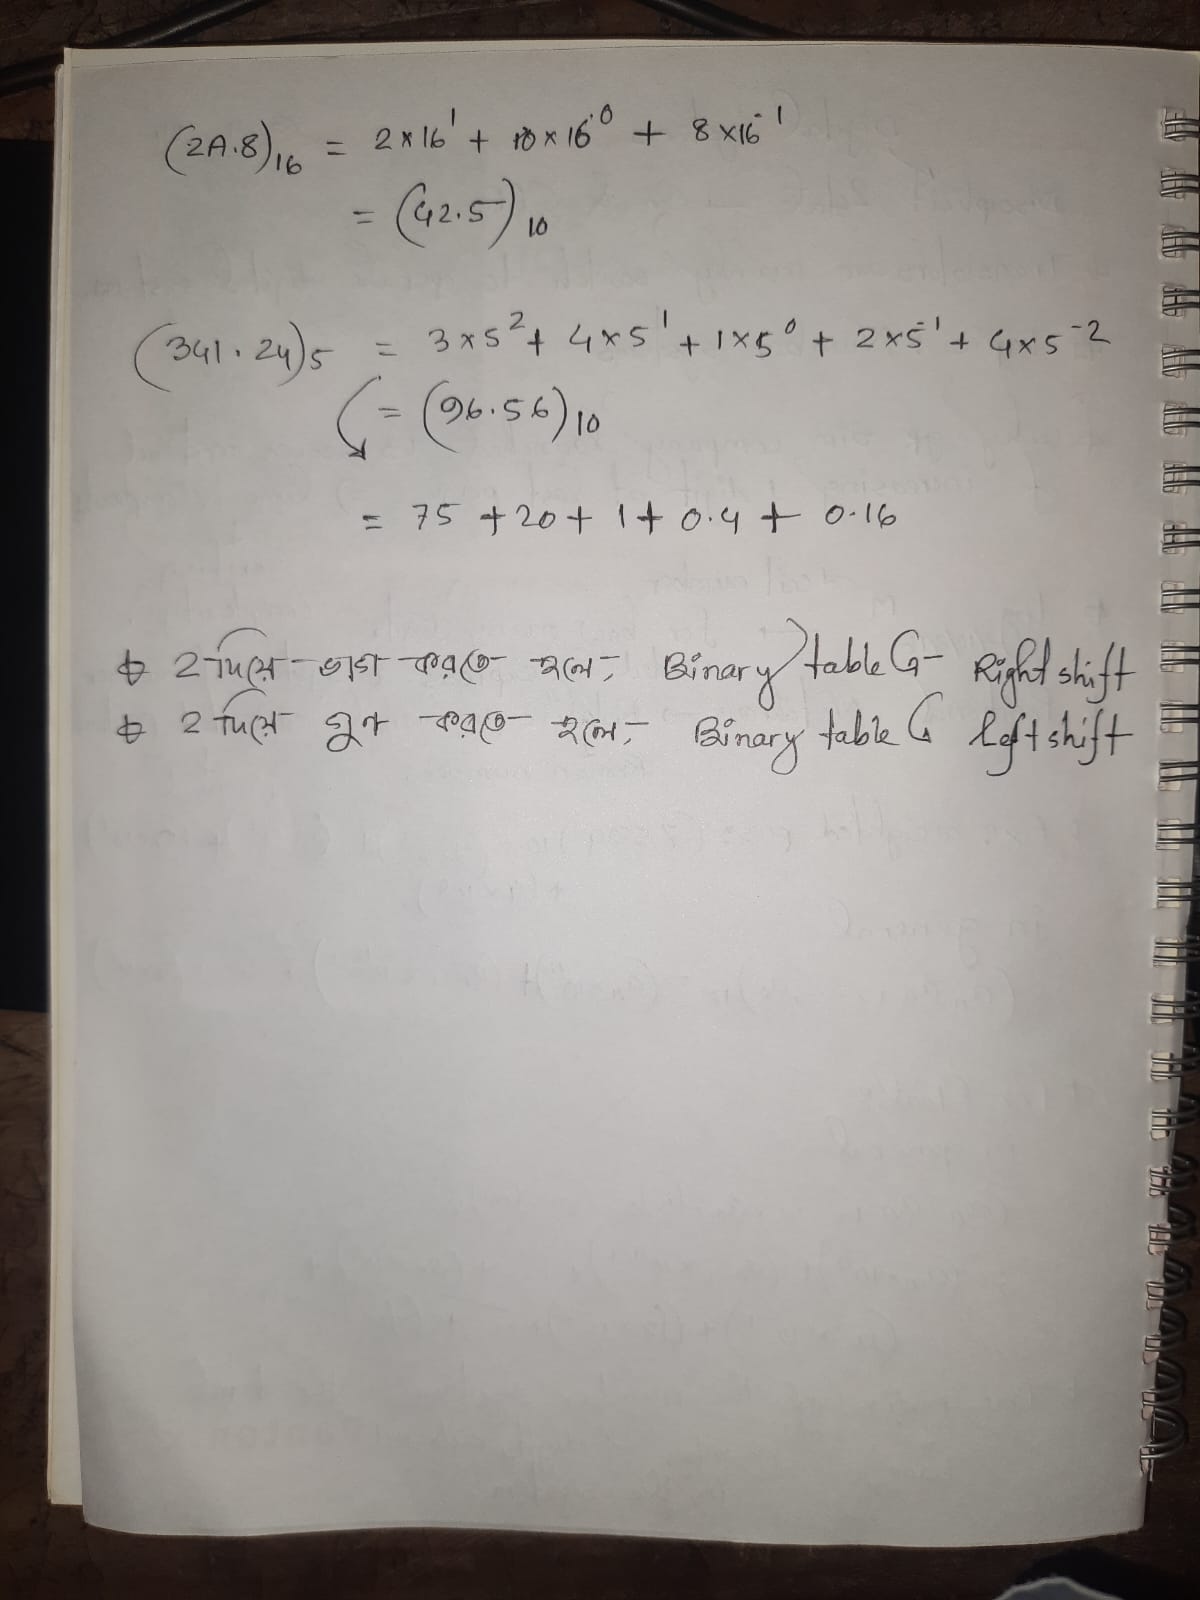 (2A.8)₁₆ = 2×16¹ + 10×16⁰ + 8×16⁻¹
= (42.5)₁₀
(341.24)₅ = 3×5² + 4×5¹ + 1×5⁰ + 2×5⁻¹ + 4×5⁻²
= (96.56)₁₀
= 75 + 20 + 1 + 0.4 + 0.16
2 দিয়ে ভাগ করতে হলে, Binary table এ Right shift
2 দিয়ে গুন করতে হলে, Binary table এ left shift